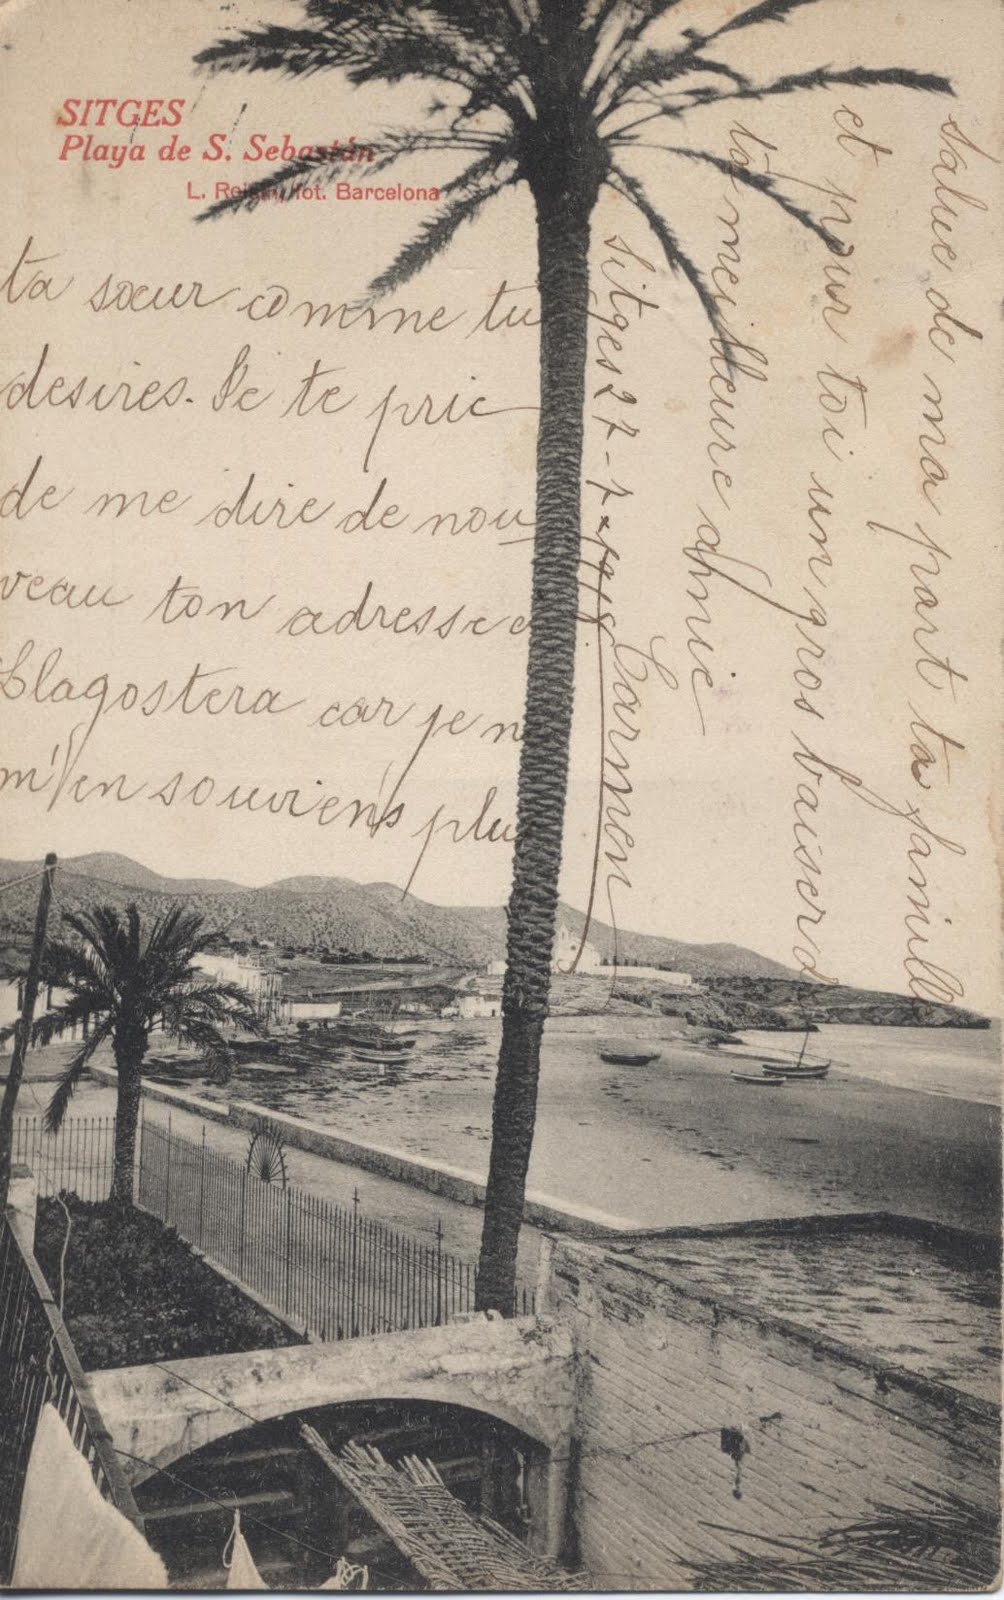 SITGES
Playa de S. Sebastián
L. Roisin, fot. Barcelona
ta sœur comme tu
desires. Je te prie
de me dire de nou
veau ton adresse
Llagostera car je n
m'en souviens plu
salue de ma part ta famille
et pour toi un gros baiser d
ta meilleure amie
Sitges 27-7-
Carmen